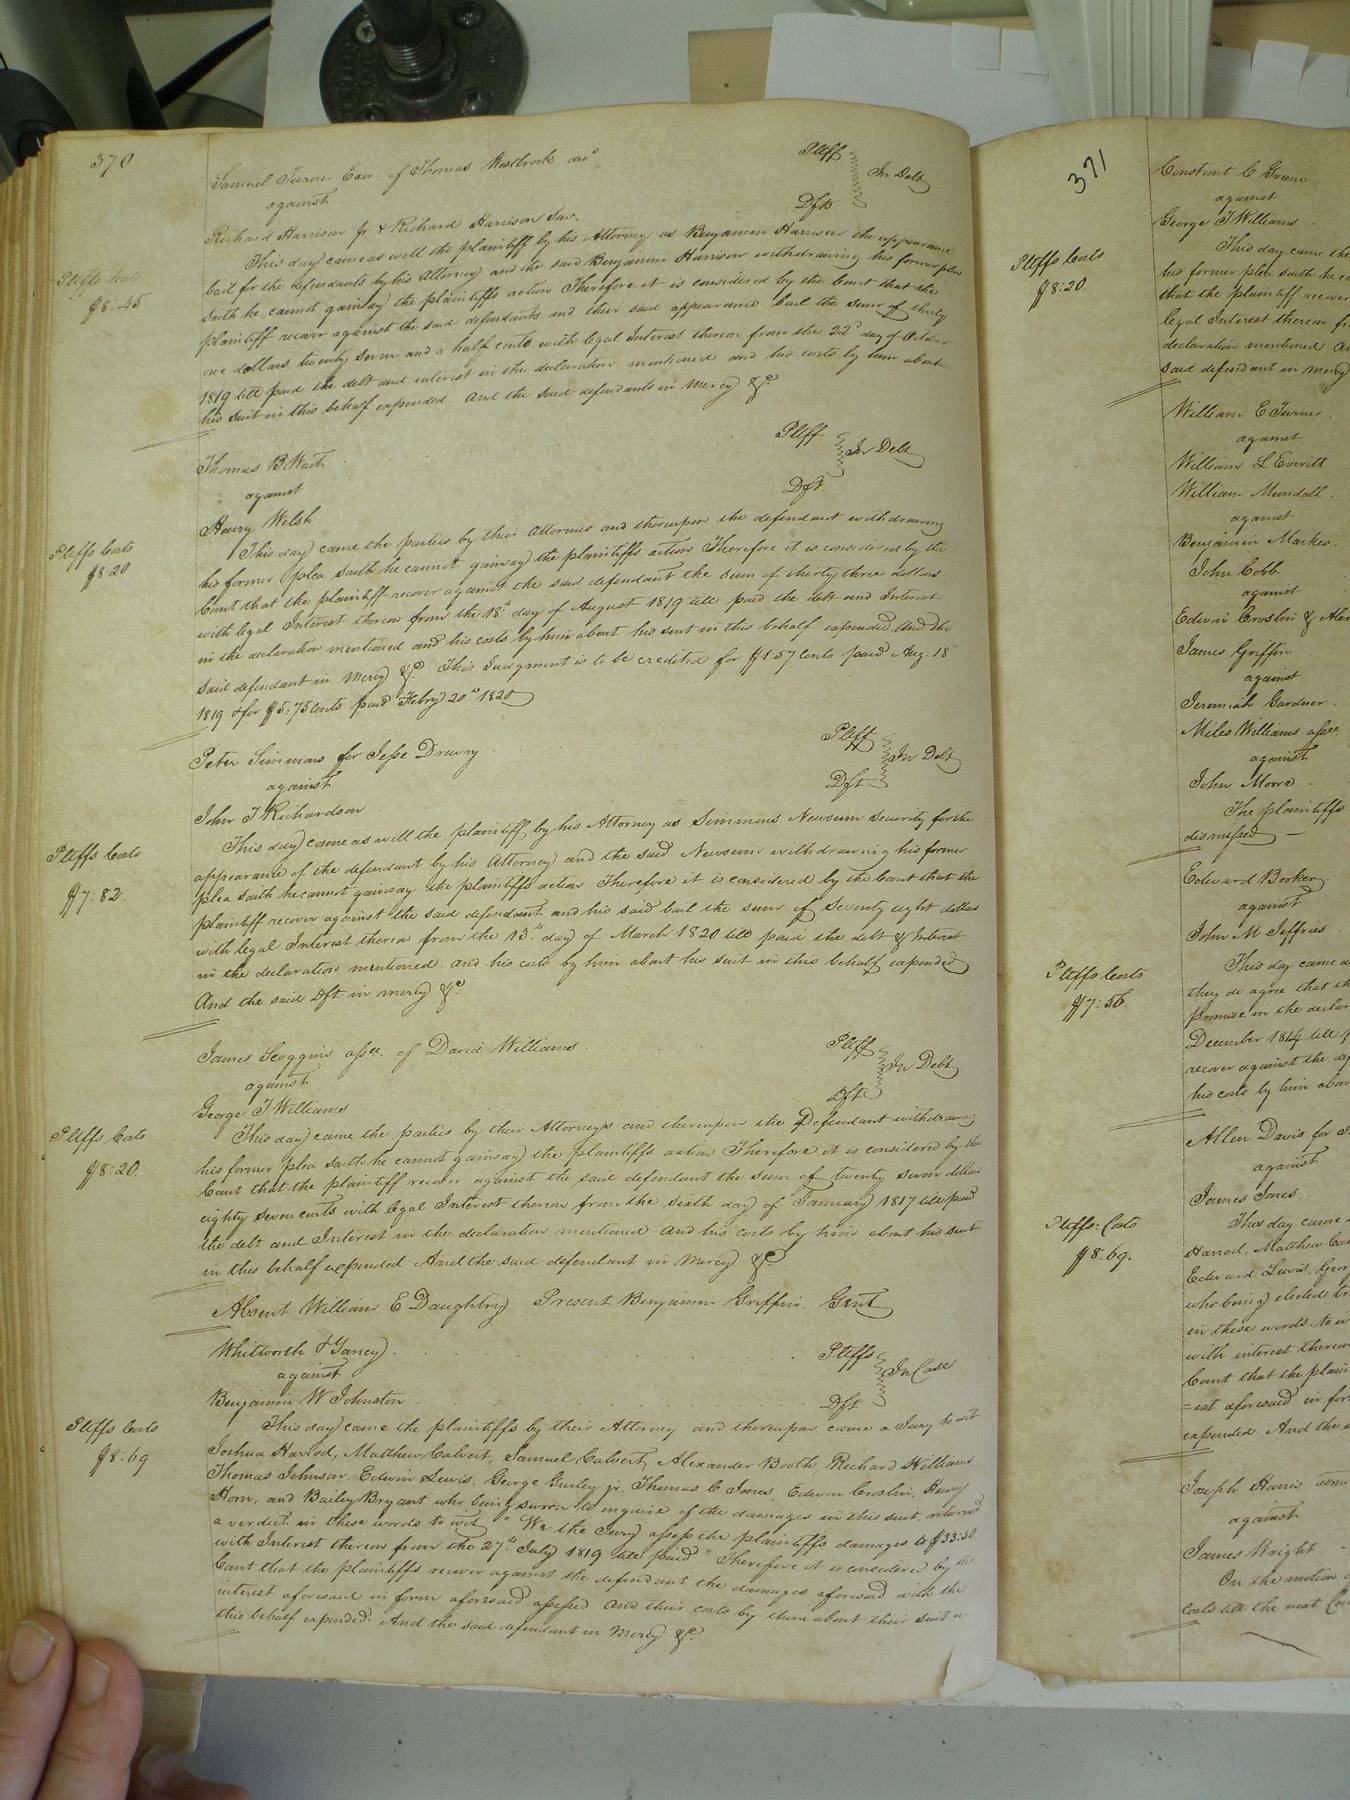 370
Samuel Turner Exor. of Thomas Westbrook decd Pltff
against In Debt
Richard Harrison jr & Richard Harrison Senr. Dfts
This day came as well the plaintiff by his Attorney as Benjamin Harrison the appearance
bail for the defendants by his Attorney and the said Benjamin Harrison withdrawing his former plea
saith he cannot gainsay the plaintiffs action Therefore it is considered by the Court that the
Pltffs Costs
$8:45
plaintiff recover against the said defendants and their said appearance bail the sum of thirty
one dollars twenty seven and a half cents with legal Interest thereon from the 22d day of October
1819 till paid the debt and interest in the declaration mentioned and his costs by him about
his suit in this behalf expended And the said defendants in Mercy &c.
Thomas B Wait Pltff
against In Debt
Henry Welsh Dft
This day came the parties by their Attornies and thereupon the defendant withdrawing
Pltffs Costs
$8:20
his former plea saith he cannot gainsay the plaintiffs action Therefore it is considered by the
Court that the plaintiff recover against the said defendant the sum of thirty three dollars
with legal Interest thereon from the 18th day of August 1819 till paid the debt and Interest
in the declaration mentioned and his costs by him about his suit in this behalf expended And the
said defendant in Mercy &c. This Judgment is to be credited for $1.57 Cents paid Aug: 18
1819 & for $5:75 Cents paid Febry 20th 1820
Peter Simmons for Jesse Drewry Pltff
against In Debt
John T Richardson Dft
This day came as well the plaintiff by his Attorney as Simmons Newsum security for the
Pltffs Costs
$7:82.
appearance of the defendant by his Attorney and the said Newsum withdrawing his former
plea saith he cannot gainsay the plaintiffs action Therefore it is considered by the Court that the
plaintiff recover against the said defendant and his said bail the sum of Seventy eight dollars
with legal Interest thereon from the 13th day of March 1820 till paid the debt & Interest
in the declaration mentioned and his costs by him about his suit in this behalf expended
And the said Dft in mercy &c.
James Scoggins assee. of David Williams Pltff
against In Debt
George T Williams Dft
This day came the parties by their Attorneys and thereupon the Defendant withdrawing
Pltffs Costs
$8:20.
his former plea saith he cannot gainsay the plaintiffs action Therefore it is considered by the
Court that the plaintiff recover against the said defendant the sum of twenty seven dollars
eighty seven cents with legal Interest thereon from the sixth day of January 1817 till paid
the debt and Interest in the declaration mentioned And his costs by him about his suit
in this behalf expended And the said defendant in Mercy &c
Absent William E Daughtry Present Benjamin Griffin Gent
Whitworth & Yancey. Pltffs
against In Case
Benjamin W Johnston Dft
This day came the plaintiffs by their Attorney and thereupon came a Jury to wit
Pltffs Costs
$8:69
Joshua Harrod, Matthew Calvert, Samuel Calvert, Alexander Booth, Richard Williams
Thomas Johnson, Edwin Lewis, George Gurley jr, Thomas C Jones, Edwin Croslin, Henry
Horn, and Bailey Bryant who being sworn to inquire of the damages in this suit, returned
a verdict in these words to wit " We the Jury assess the plaintiffs damages to $33:50
with Interest thereon from the 27th July 1819 till paid " Therefore it is considered by the
Court that the plaintiffs recover against the defendant the damages aforesaid with the
interest aforesaid in form aforesaid assessed And their costs by them about their suit in
this behalf expended. And the said defendant in Mercy &c.
371
Constant C Greene
against
George T Williams
This day came the
Pltffs Costs
$8:20.
his former plea saith he ca
that the plaintiff recover
legal Interest thereon fr
declaration mentioned a
said defendant in mercy
William E Turner
against
William L Everitt
William Mundall
against
Benjamin Mackes.
John Cobb
against
Edwin Croslin & Alex
James Griffin
against
Jeremiah Gardner.
Miles Williams assee
against
John Moore
The plaintiffs
dismissed
Edward Booker
against
John M Jeffries
This day came a
Pltffs Costs
$7:56.
they do agree that th
promise in the declar
December 1814 till p
recover against the
his costs by him abou
Allen Davis for
against
James Jones.
This day came
Pltffs: Costs
$8:69.
Harrod, Matthew Cal
Edward Lewis, Geor
who being elected tr
in these words to w
with interest thereon
Court that the plain
=est aforesaid in for
expended And the
Joseph Harris
against
James Wright
On the motion
costs till the next Cou